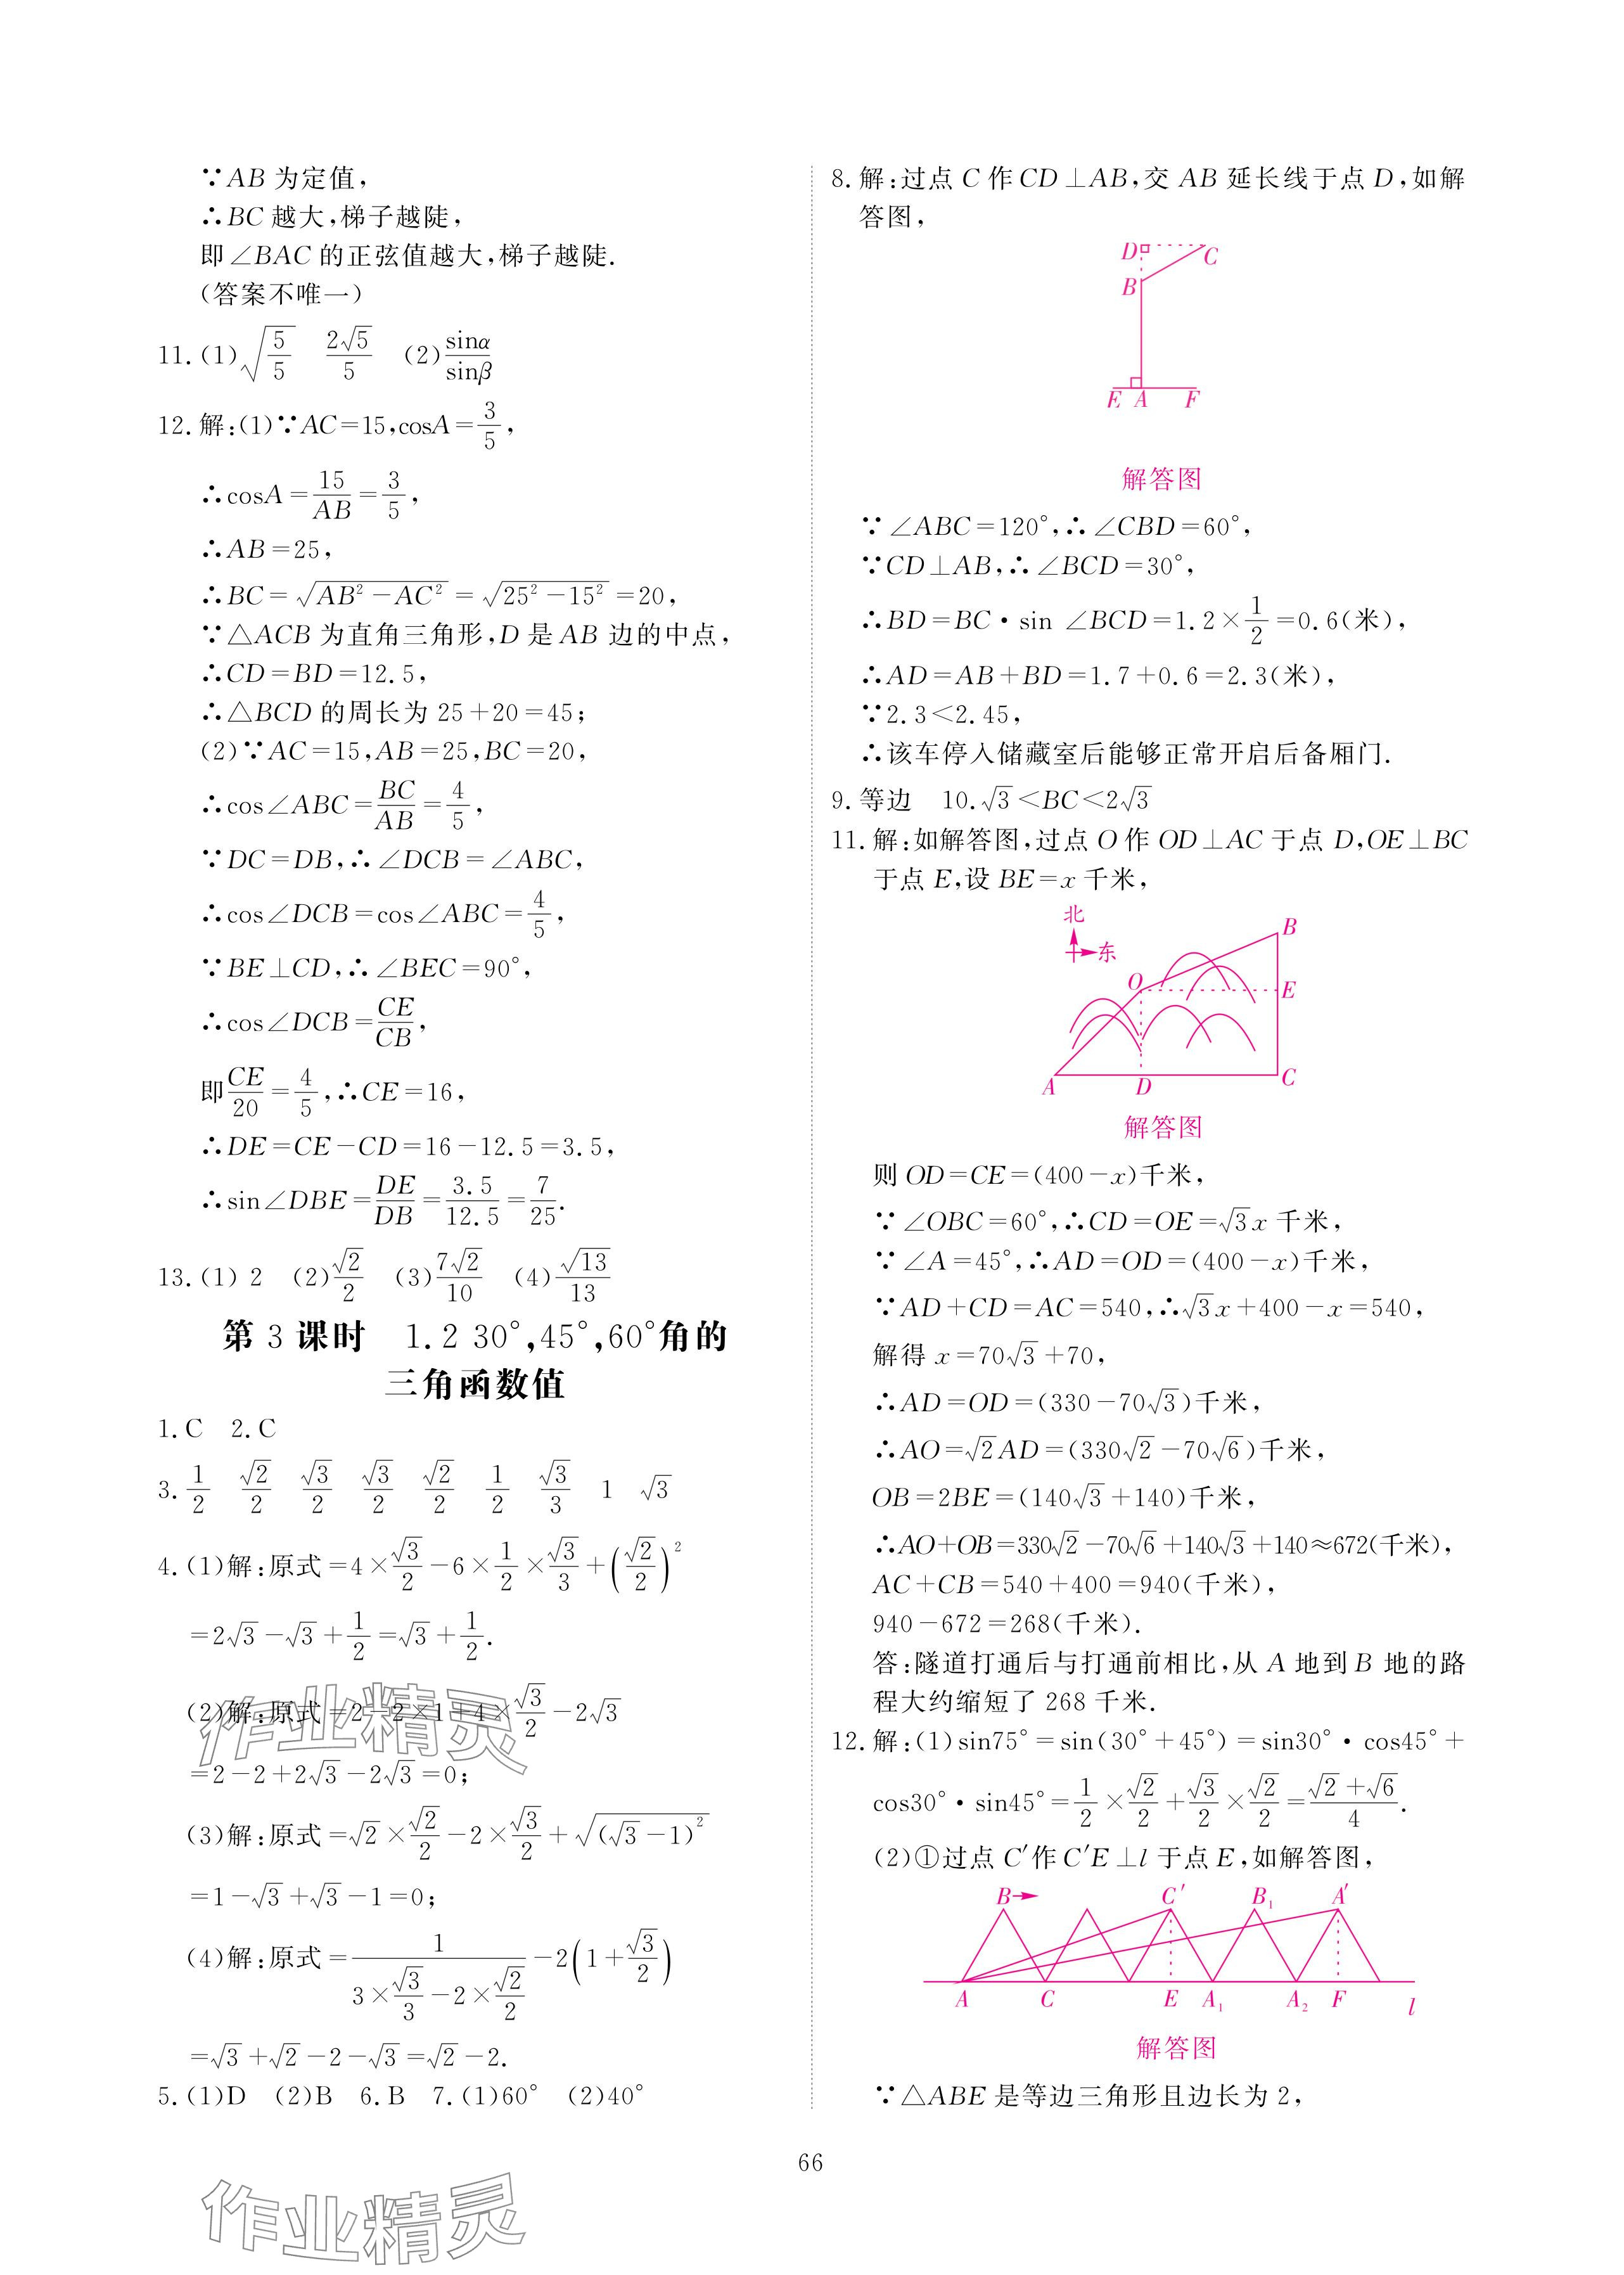 ∵AB 为定值,
∴BC 越大,梯子越陡,
即∠BAC 的正弦值越大,梯子越陡.
(答案不唯一)
11.(1)√(5/5)  2√5/5  (2)sinα/sinβ
12.解:(1)∵AC=15,cosA=3/5,
∴cosA=15/AB=3/5,
∴AB=25,
∴BC=√(AB²-AC²)=√(25²-15²)=20,
∵△ACB 为直角三角形,D 是AB 边的中点,
∴CD=BD=12.5,
∴△BCD 的周长为 25+20=45;
(2)∵AC=15,AB=25,BC=20,
∴cos∠ABC=BC/AB=4/5,
∵DC=DB,∴∠DCB=∠ABC,
∴cos∠DCB=cos∠ABC=4/5,
∵BE⊥CD,∴∠BEC=90°,
∴cos∠DCB=CE/CB,
即CE/20=4/5,∴CE=16,
∴DE=CE-CD=16-12.5=3.5,
∴sin∠DBE=DE/DB=3.5/12.5=7/25.
13.(1) 2  (2)√2/2  (3)7√2/10  (4)√13/13
第 3 课时  1.2 30°,45°,60°角的
三角函数值
1.C  2.C
3.1/2  √2/2  √3/2  √3/2  √2/2  1/2  √3/3  1  √3
4.(1)解:原式=4×√3/2-6×1/2×√3/3+(√2/2)²
=2√3-√3+1/2=√3+1/2.
(2)解:原式=2-2×1+4×√3/2-2√3
=2-2+2√3-2√3=0;
(3)解:原式=√2×√2/2-2×√3/2+√((√3-1)²)
=1-√3+√3-1=0;
(4)解:原式=1/(3×√3/3-2×√2/2)-2(1+√3/2)
=√3+√2-2-√3=√2-2.
5.(1)D  (2)B  6.B  7.(1)60°  (2)40°
8.解:过点 C 作CD⊥AB,交 AB 延长线于点 D,如解
答图,
D C
B
E A F
解答图
∵∠ABC=120°,∴∠CBD=60°,
∵CD⊥AB,∴∠BCD=30°,
∴BD=BC·sin ∠BCD=1.2×1/2=0.6(米),
∴AD=AB+BD=1.7+0.6=2.3(米),
∵2.3<2.45,
∴该车停入储藏室后能够正常开启后备厢门.
9.等边  10.√3<BC<2√3
11.解:如解答图,过点 O 作 OD⊥AC 于点 D,OE⊥BC
于点 E,设 BE=x 千米,
北
东
B
O
E
A D C
解答图
则 OD=CE=(400-x)千米,
∵∠OBC=60°,∴CD=OE=√3x 千米,
∵∠A=45°,∴AD=OD=(400-x)千米,
∵AD+CD=AC=540,∴√3x+400-x=540,
解得 x=70√3+70,
∴AD=OD=(330-70√3)千米,
∴AO=√2AD=(330√2-70√6)千米,
OB=2BE=(140√3+140)千米,
∴AO+OB=330√2-70√6+140√3+140≈672(千米),
AC+CB=540+400=940(千米),
940-672=268(千米).
答:隧道打通后与打通前相比,从 A 地到B 地的路
程大约缩短了 268 千米.
12.解:(1)sin75°=sin(30°+45°)=sin30°·cos45°+
cos30°·sin45°=1/2×√2/2+√3/2×√2/2=(√2+√6)/4.
(2)①过点 C′作C′E⊥l 于点 E,如解答图,
B C′ B₁ A′
A C E A₁ A₂ F l
解答图
∵△ABE 是等边三角形且边长为 2,
66
作业精灵
作业精灵